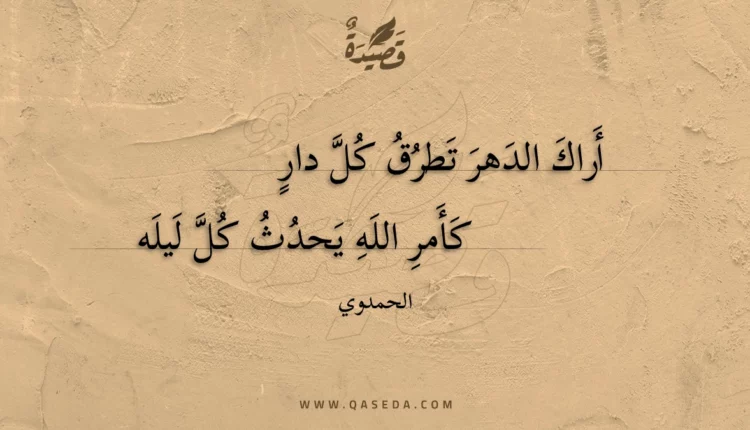 قَصِيْدَةٌ
أَراكَ الدَهرَ تَطرُقُ كُلَّ دارٍ
كَأَمرِ اللَهِ يَحدُثُ كُلَّ لَيلَه
الحمدوي
WWW.QASEDA.COM